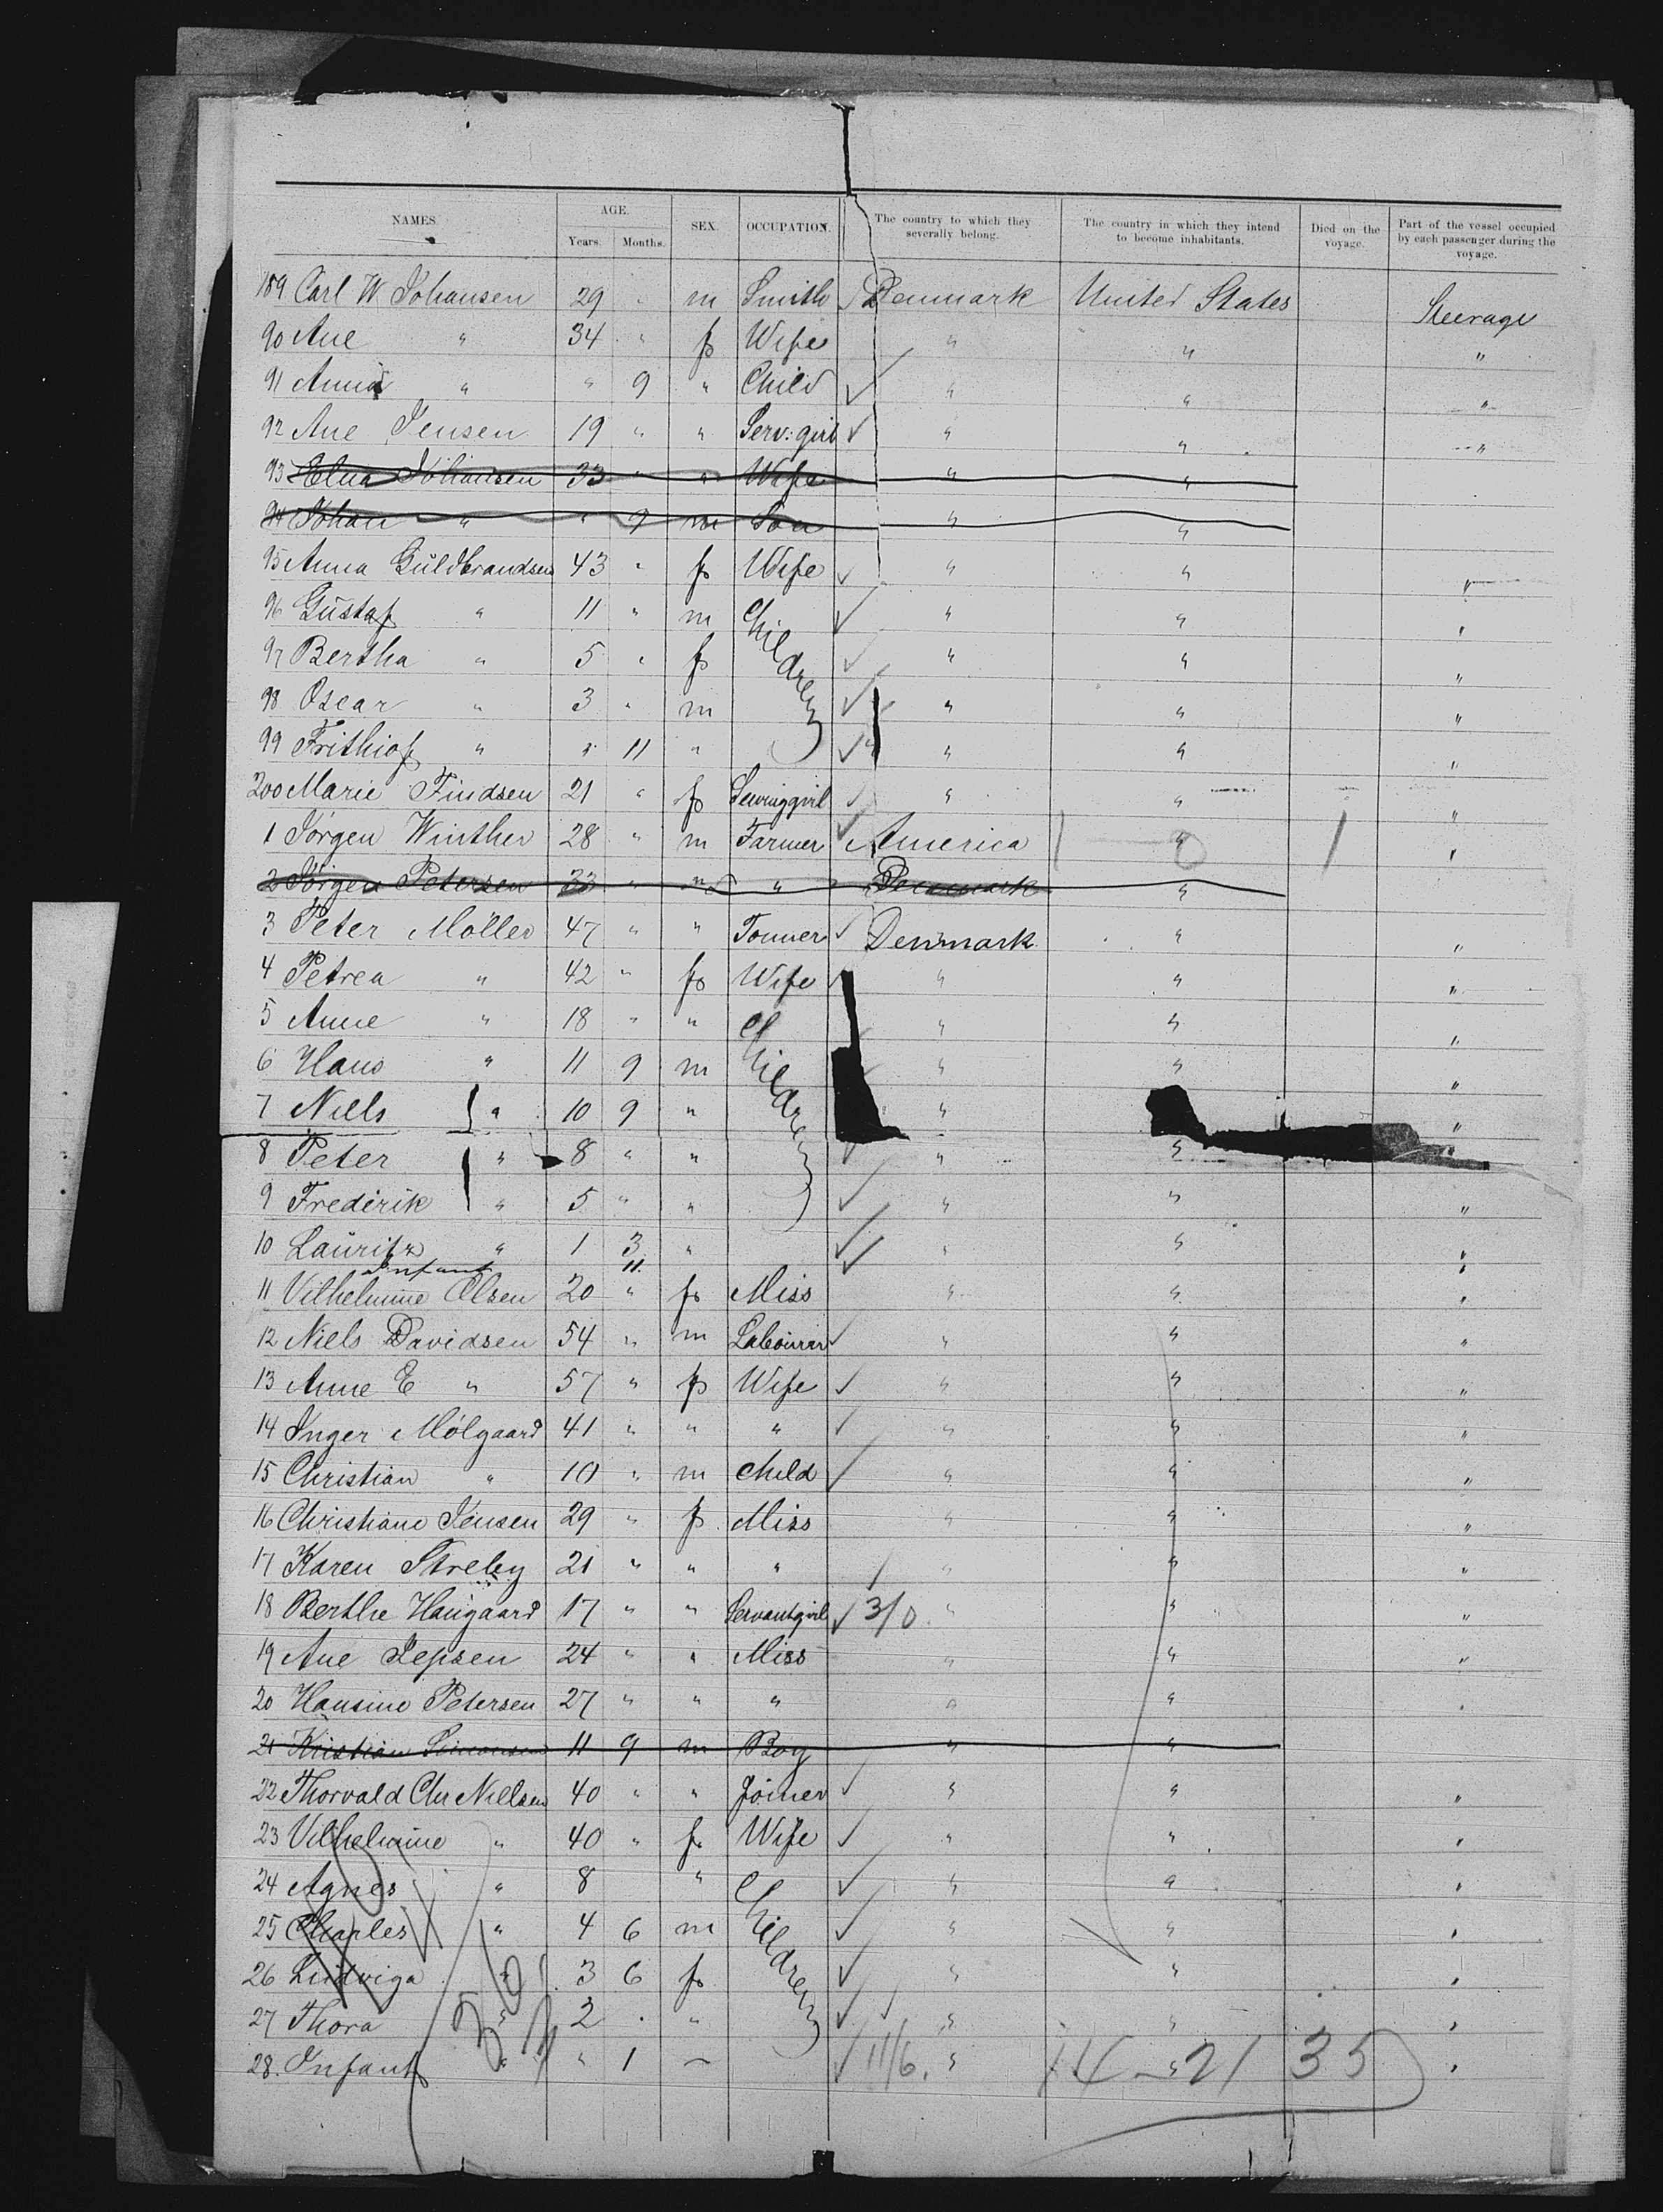 NAMES. AGE. SEX. OCCUPATION. The country to which they severally belong. The country in which they intend to become inhabitants. Died on the voyage. Part of the vessel occupied by each passenger during the voyage.
Years. Months.
189 Carl W Johansen 29 " m Smith Denmark United States Steerage
90 Ane " 34 " f Wife " " "
91 Anna " " 9 " Child " " "
92 Ane Jensen 19 " " Serv: girl " " "
93 Elna Johansen 33 " " Wife " "
94 Johan " " 9 m Son " "
95 Anna Güldbrandsen 43 " f Wife " " "
96 Güstaf " 11 " m Children " " "
97 Bertha " 5 " f " " "
98 Oscar " 3 " m " " "
99 Frithiof " " 11 " " " "
200 Marie Findsen 21 " f Sewinggirl " " "
1 Jörgen Winther 28 " m Farmer America " "
2 Jörgen Petersen 33 " m " Denmark "
3 Peter Möller 47 " " Tanner Denmark " "
4 Petrea " 42 " f Wife " " "
5 Anne " 18 " " Children " " "
6 Hans " 11 9 m " " "
7 Niels " 10 9 " " "
8 Peter " 8 " " " "
9 Frederik " 5 " " " " "
10 Lauritz " 1 3 " " " "
Infant 11
11 Vilhelmine Olsen 20 " f Miss " " "
12 Niels Davidsen 54 " m Labourer " " "
13 Anne E " 57 " f Wife " " "
14 Inger Mölgaard 41 " " " " " "
15 Christian " 10 " m Child " " "
16 Christiane Jensen 29 " f Miss " " "
17 Karen Streby 21 " " " " " "
18 Berthe Haugaard 17 " " Servantgirl 3/0 " " "
19 Ane Jepsen 24 " " Miss " " "
20 Hansine Petersen 27 " " " " " "
21 Kristian Simonsen 11 9 m Boy " "
22 Thorvald Chr Nielsen 40 " " Joiner " " "
23 Vilhelmine " 40 " f Wife " " "
24 Agnes " 8 " Children " " "
25 Charles " 4 6 m " " "
26 Ludviga " 3 6 f " " "
27 Thora " 2 " " " " "
28 Infant " " 1 " 11/6. " 14 - 21 35 "